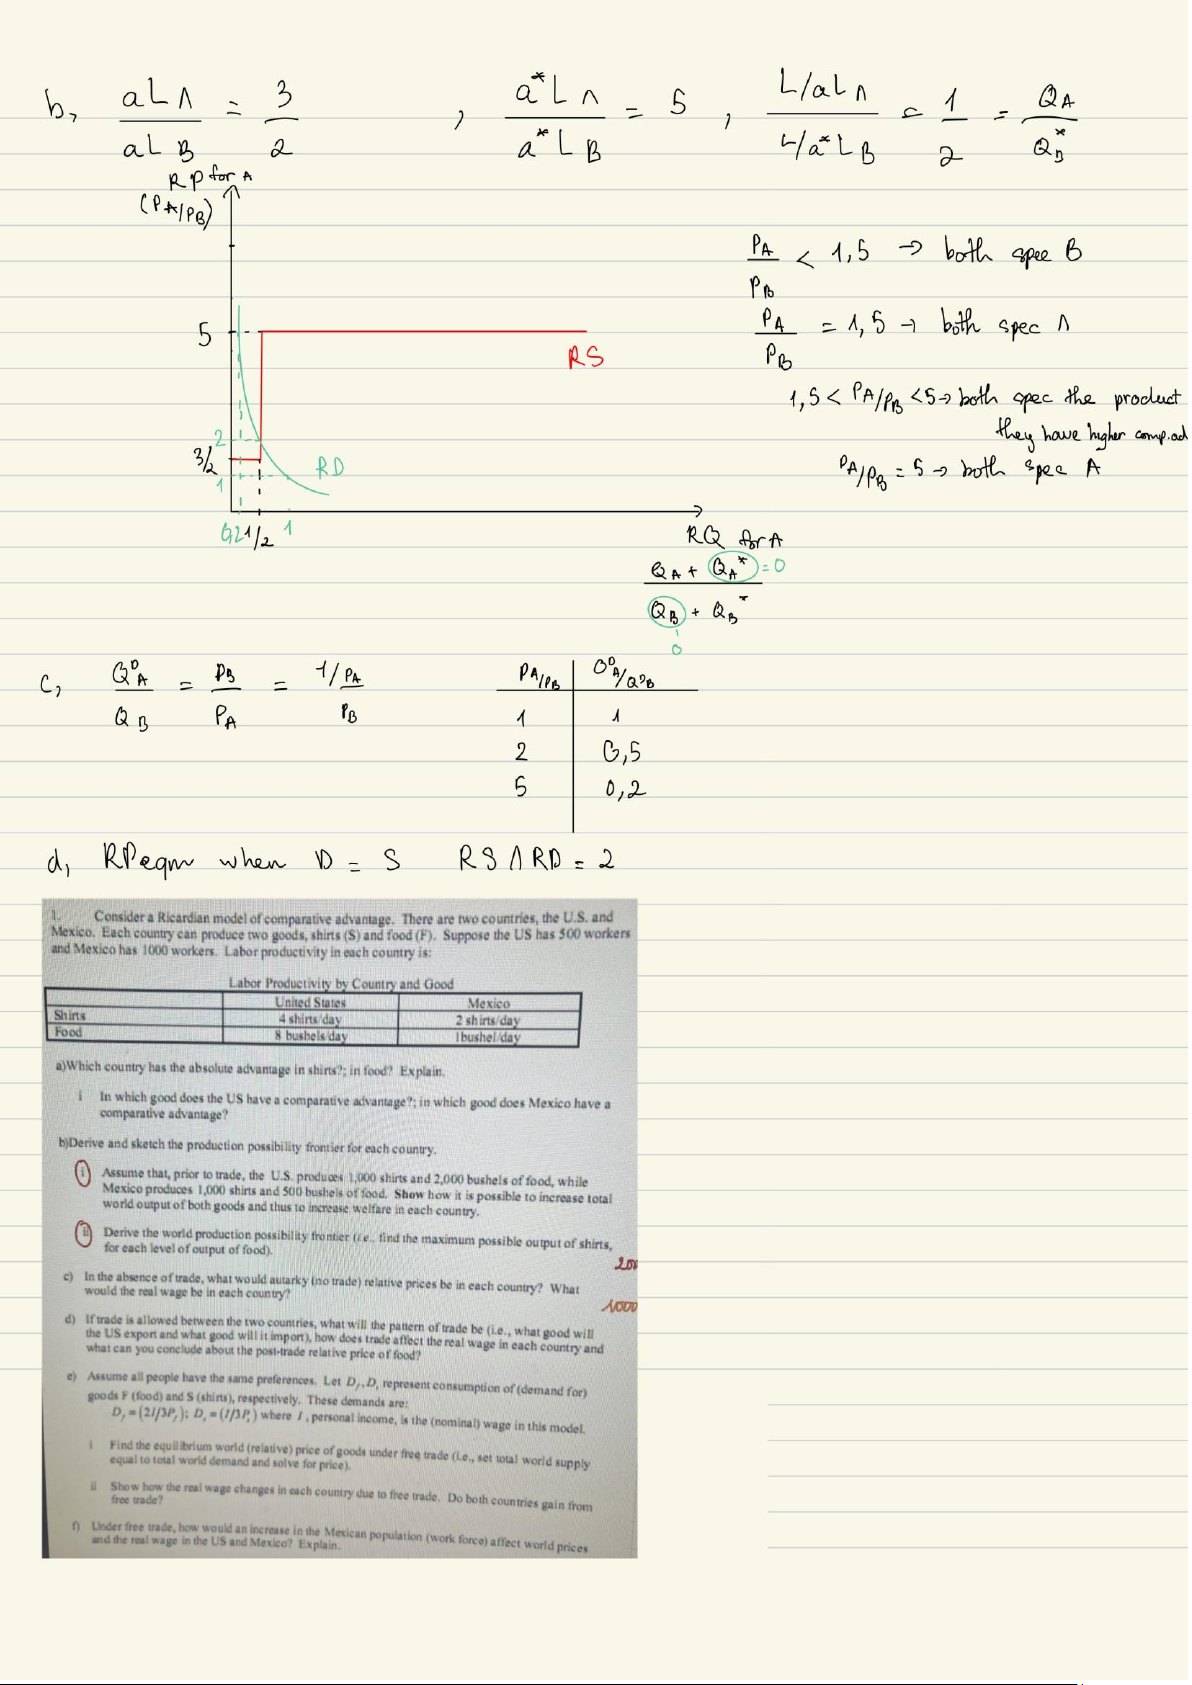 b, aLA / aLB = 3/2 , a*LA / a*LB = 5 , L/aLA / L/a*LB = 1/2 = QA / QB*
RP for A
(PA/PB)
PA/PB < 1,5 → both spec B
5
PA/PB = 1,5 → both spec A
RS
1,5 < PA/PB < 5 → both spec the product
they have higher comp.ad
2
3/2
RD
PA/PB = 5 → both spec A
1
0,2 1/2 1
RQ for A
QA + QA* = 0
QB + QB*
0
c, QDA / QB = PB / PA = 1/PA / PB
PA/PB QDA/QDB
1 1
2 0,5
5 0,2
d, RPeqm when D = S RS ∩ RD = 2
1. Consider a Ricardian model of comparative advantage. There are two countries, the U.S. and
Mexico. Each country can produce two goods, shirts (S) and food (F). Suppose the US has 500 workers
and Mexico has 1000 workers. Labor productivity in each country is:
Labor Productivity by Country and Good
United States Mexico
Shirts 4 shirts/day 2 shirts/day
Food 8 bushels/day 1bushel/day
a)Which country has the absolute advantage in shirts?; in food? Explain.
i In which good does the US have a comparative advantage?; in which good does Mexico have a
comparative advantage?
b)Derive and sketch the production possibility frontier for each country.
i Assume that, prior to trade, the U.S. produces 1,000 shirts and 2,000 bushels of food, while
Mexico produces 1,000 shirts and 500 bushels of food. Show how it is possible to increase total
world output of both goods and thus to increase welfare in each country.
ii Derive the world production possibility frontier (i.e., find the maximum possible output of shirts,
for each level of output of food).
200
c) In the absence of trade, what would autarky (no trade) relative prices be in each country? What
would the real wage be in each country?
1000
d) If trade is allowed between the two countries, what will the pattern of trade be (i.e., what good will
the US export and what good will it import), how does trade affect the real wage in each country and
what can you conclude about the post-trade relative price of food?
e) Assume all people have the same preferences. Let Df, Ds represent consumption of (demand for)
goods F (food) and S (shirts), respectively. These demands are:
Df = (2I/3Pf); Ds = (I/3Ps) where I, personal income, is the (nominal) wage in this model.
i Find the equilibrium world (relative) price of goods under free trade (i.e., set total world supply
equal to total world demand and solve for price).
ii Show how the real wage changes in each country due to free trade. Do both countries gain from
free trade?
f) Under free trade, how would an increase in the Mexican population (work force) affect world prices
and the real wage in the US and Mexico? Explain.